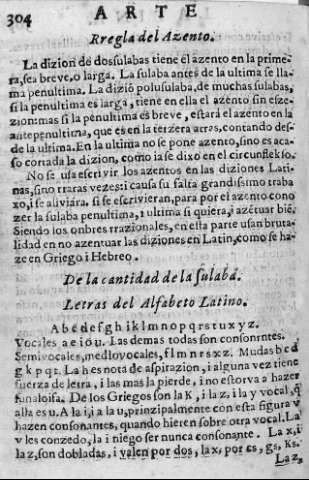 304 ARTE
Rregla del Azento.
La dizion de dossulabas tiene el azento en la prime-
ra, sea breve, o larga. La sulaba antes de la ultima se lla-
ma penultima. La dizió polusulaba, de muchas sulabas,
si la penultima es larga, tiene en ella el azento sin esze-
zion: mas si la penultima es breve, estará el azento en la
antepenultima, que es en la terzera atras, contando des-
de la ultima. En la ultima no se pone azento, sino es aca-
so cortada la dizion, como ia se dixo en el circunflekso.
No se usa escrivir los azentos en las diziones Lati-
nas, sino rraras vezes: i causa su falta grandisimo traba
xo, i se aliviára, si se escrivieran, para por el azento cono
zer la sulaba penultima, i ultima si quiera, i azétuar bié.
Siendo los onbres rrazionales, en esta parte usan bruta-
lidad en no azentuar las diziones en Latin, como se ha-
ze en Griego i Hebreo.
De la cantidad de la sulabá.
Letras del Alfabeto Latino.
A b c d e f g h i k l m n o p q r s t u x y z.
Vocales a e i o u. Las demas todas son consonntes.
Semivocales, mediovocales, f l m n r s x z. Mudas b c d
g k p q t. La h es nota de aspirazion, i alguna vez tiene
fuerza de letra, i las mas la pierde, i no estorva a hazer
sunaloifa. De los Griegos son la K, i la z, i la y vocal, q̃
alla es u. A la i, i a la u, prinzipalmente con esta figura v
hazen consonantes, quando hieren sobre otra vocal. La
v les conzedo, la i niego ser nunca consonante. La x, i
la z, son dobladas, i valen por dos, la x, por cs, gs, Ks.
La z,